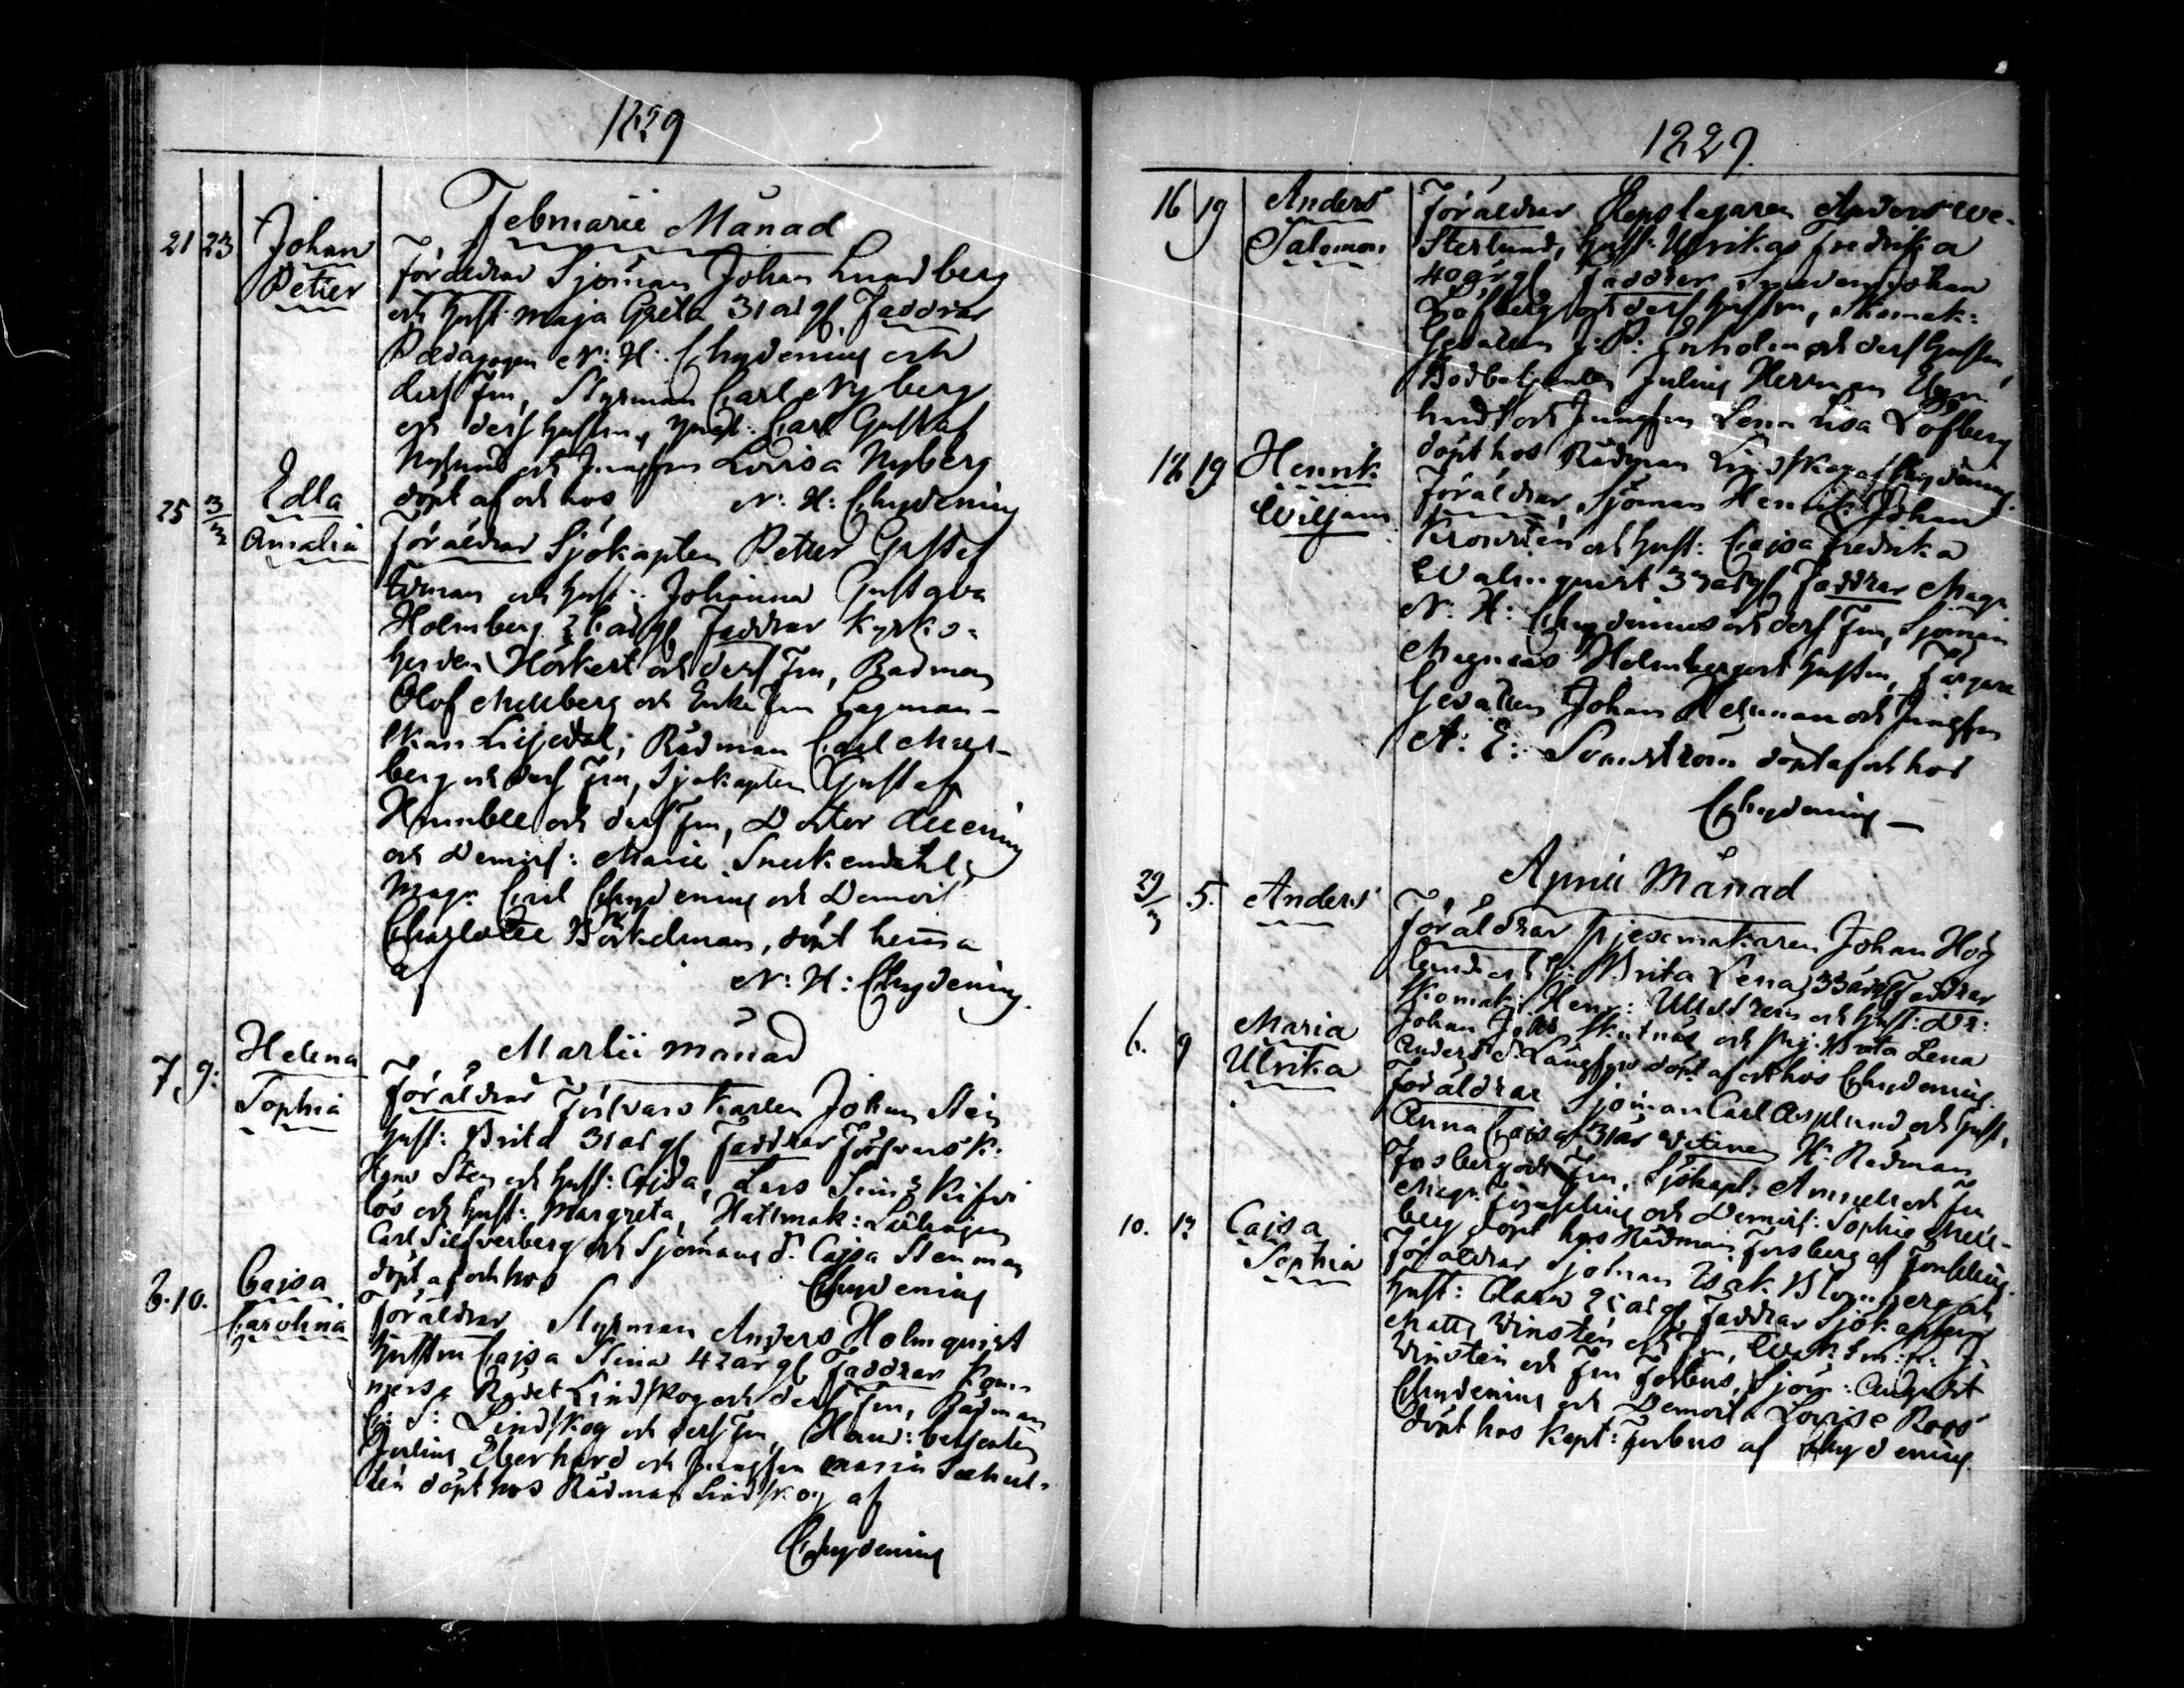 1829
Februarii Månad
21 23 Johan Petter
Föräldrar Sjöman Johan Lundberg
och hust: Maja Greta 31 år gl. Faddrar
Pædagogen N: H: Chydenius och
dess Fru, Styrman Carl Nyberg
och dess hustru, Carl Gustaf
Nylund och Jungfru Lovisa Nyberg
döpt af och hos N: H: Chydenius
25 3/3 Edla Amalia
Föräldrar Sjökapten Petter Gustaf
och hust: Johanna Gustava
Holmberg år gl Faddrar Kyrko=
herden Hörkert och dess Fru, Rådman
Olof Mellberg och Enke Fru Lagman-
skan Liljedal, Rådman Carl Mell-
berg och dess Fru, Sjökapten Gustaf
Humble och dess Fru, Doktor
och Demois: Marie
Mag: Carl Chydenius och Demois
Charlotte Börkelman, döpt hemma
af
N: H: Chydenius.
Martii månad
7 9: Helena Sophia
Föräldrar Försvars Karlen Johan Sten
hust: Brita 31 år gl Faddrar Försvars K.
Sten och hust: Cajsa, Lars
lös och hust: Margreta, Hattmak: Lärlingen
Carl Silfverberg och Sjömans d. Cajsa Stenman
döpt af och hos Chydenius
8. 10. Cajsa Carolina
Föräldrar Styrman Anders Holmquist
hustru Cajsa Stina 42 år gl Faddrar Kom-
merse Rådet Lindskog och dess Fru, Rådman
C: S: Lindskog och dess Fru, Hand: betjenten
Julius Egerhard och Jungfru Maria
döpt hos Rådman Lindskog af
Chydenius
1829.
16 19 Anders Salomon
Föräldrar Repslagaren Anders We-
sterlund, hust: Ulrika Fredrika
40 år gl. Faddrar Smeden Johan
Löfberg och dess hustru, Skomak:
Gesällen och dess hustru,
Bodbetjenten Julius Herrman
och Jungfru Lena Lisa Löfberg
döpt hos Rådman Lindskog af Chydenius.
18 19 Henrik Wiljam
Föräldrar Sjöman Henrik Johan
och hust: Cajsa Fredrika
Walmquist 33 år gl Faddrar Mag:
N: H: Chydenius och dess Fru, Sjöman
Magnus Holmberg och hustru, Färgare
Gesällen Johan och Jungfru
A: E: Svanström döpt af och hos
Chydenius –
April Månad
29/3 5. Anders
Föräldrar Pjesemakaren Johan Hög
lund och h: Brita Lena 33 år gl Faddrar
Skomak: Henr: och hust:
Johan Skutnäs och Brita Lena
Anders d. Långfors döpt af och hos Chydenius.
6. 9 Maria Ulrika
Föräldrar Sjöman Carl Asplund och hust,
Anna Cajsa 31 år Witnen H: Rådman
Forsberg och Fru, Sjökapt: och Fru
Mag: och Demois: Sophie Mell-
berg döpt hos Rådman Forsberg af
10. 12 Cajsa Sophia
Föräldrar Sjöman Isak Blomberg och
hust: Clara 25 år gl Faddrar Sjökapten
Matts Winsten och Fru,
Winsten och Fru Forbus, Sjöm: August
Chydenius och Demois: Lovise Roos
döpt hos Kapt: Forbus af Chydenius